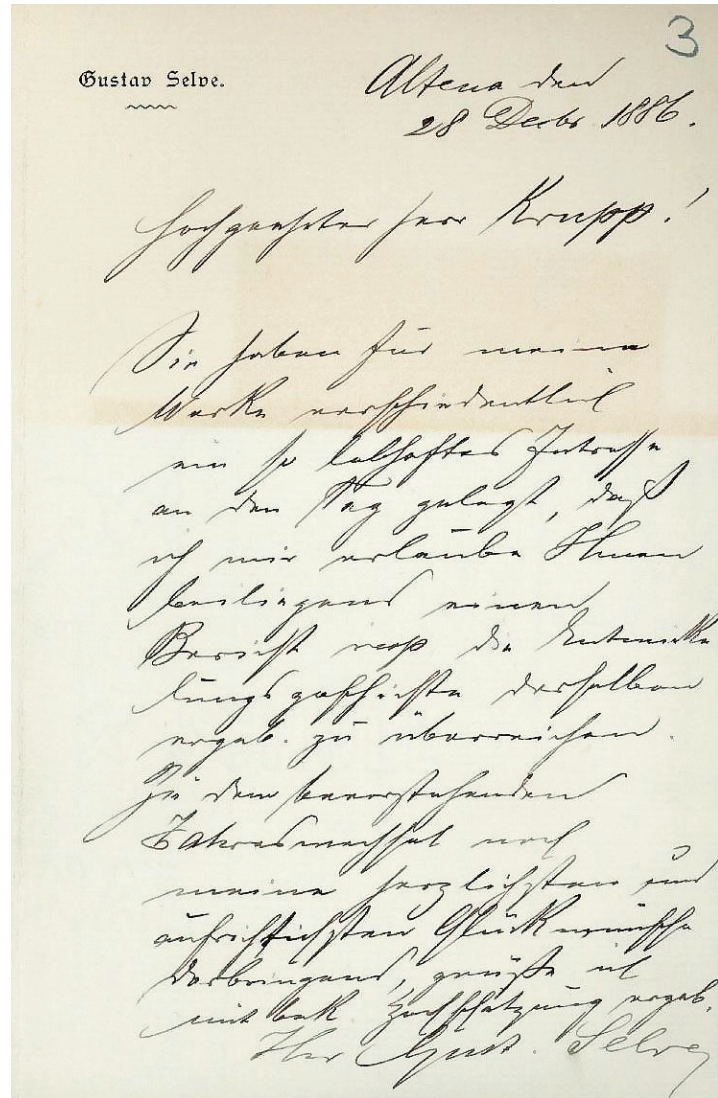 3
Gustav Selve.
Altena den
28 Decbr 1886.
Hochgeehrter Herr Krupp!
Sie haben für meine
Werke verschiedentlich
ein so lebhaftes Interesse
an den Tag gelegt, daß
ich mir erlaube Ihnen
beiliegend einen
Bericht die Entwicke
lungsgeschichte derselben
ergeb. zu überreichen.
Zu dem bevorstehenden
Jahreswechsel noch
meine herzlichsten und
aufrichtigsten Glückwünsche
darbringend, grüße ich
mit Hochschätzung ergeb.
Ihr Gust. Selve